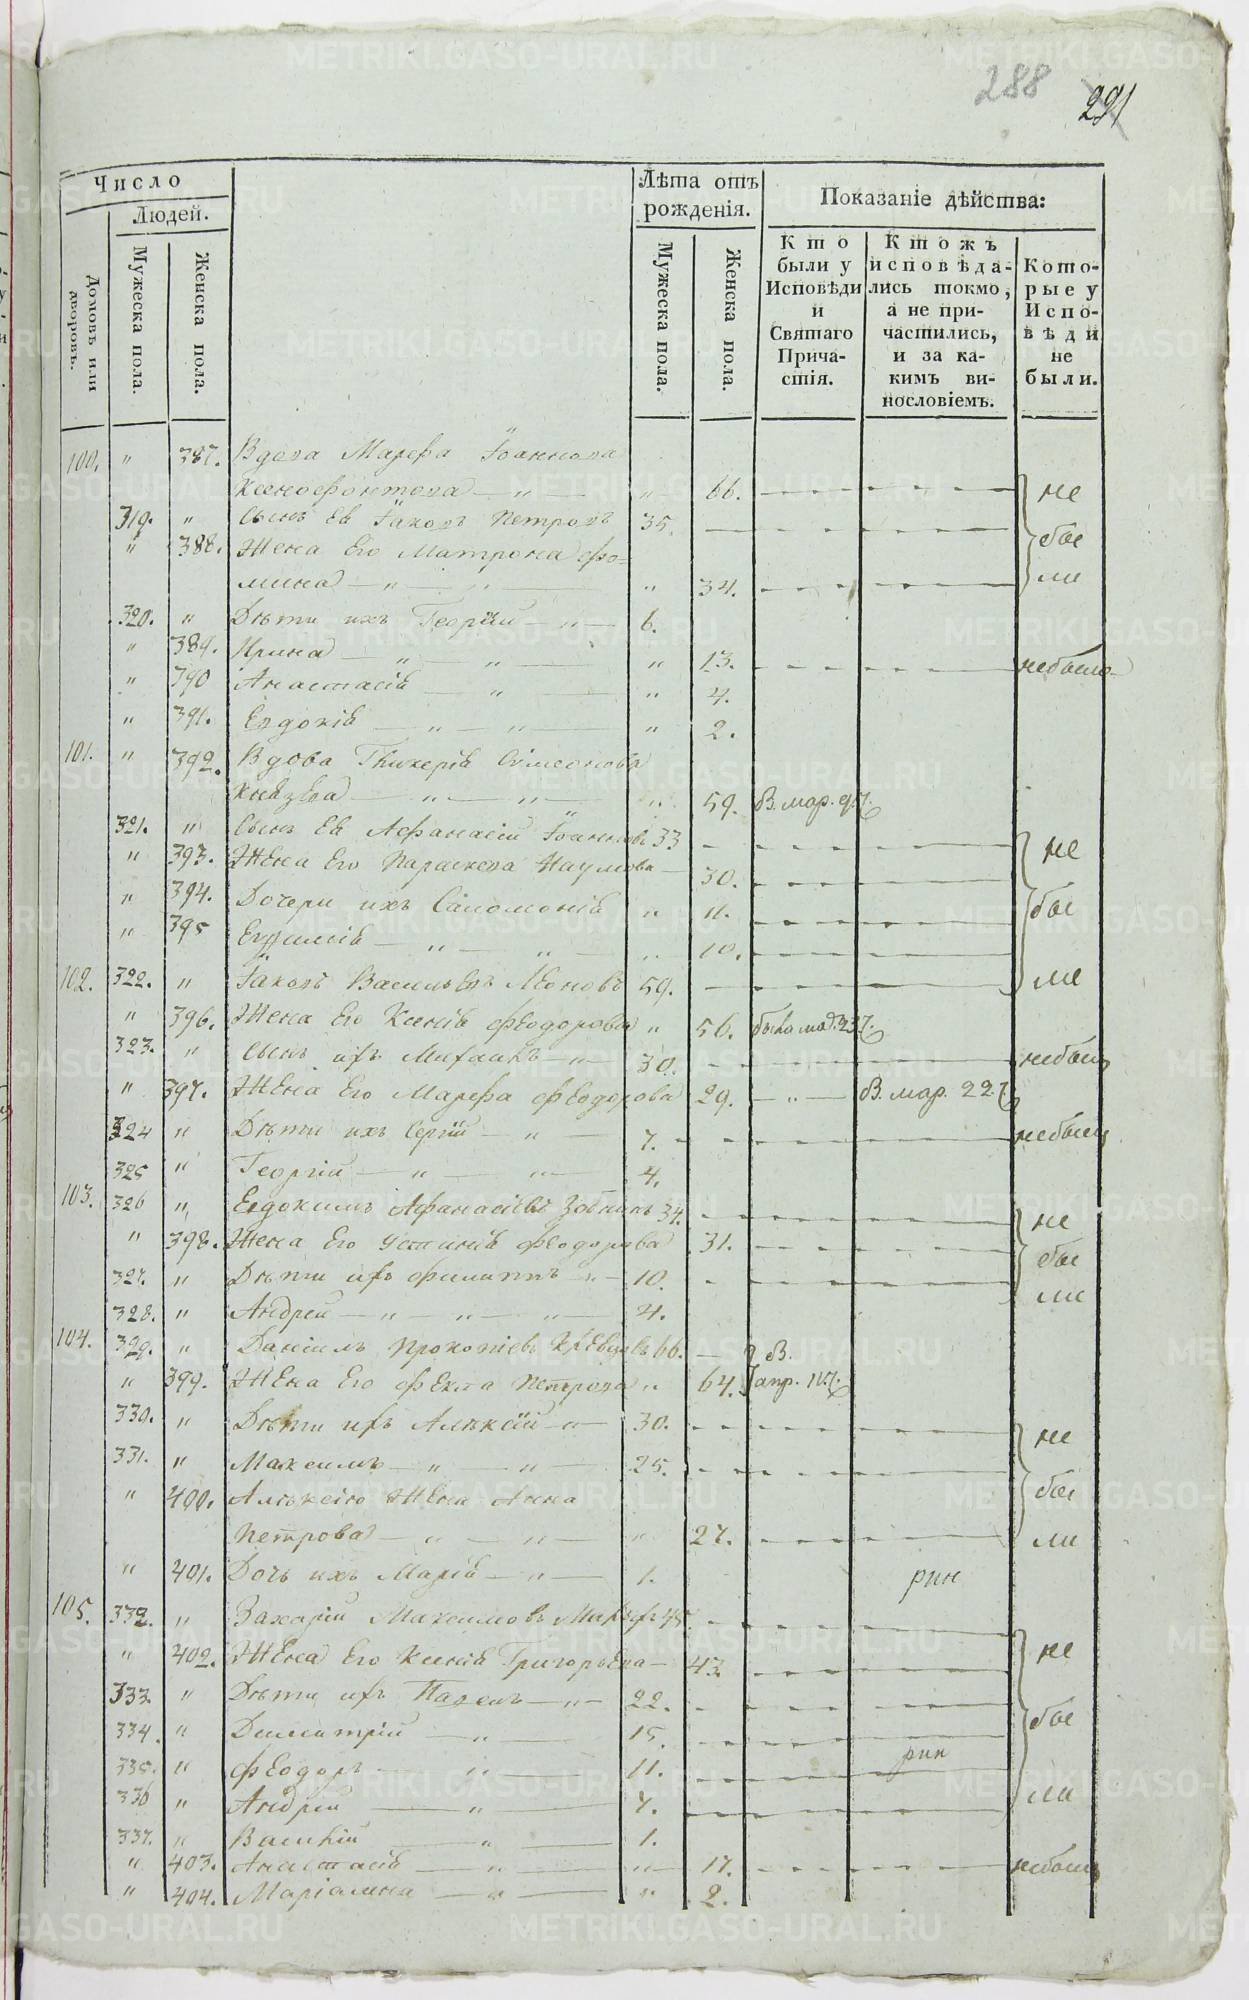 288
291
Число
Людей.
Домовъ или дворовъ.
Мужеска пола.
Женска пола.
Лѣта отъ рожденія.
Мужеска пола.
Женска пола.
Показаніе дѣйства:
Кто были у Исповѣди и Святаго Причастія.
Ктожъ исповѣдались токмо, а не причастились, и за какимъ винословіемъ.
Которые у Исповѣди не были.
100. " 387. Вдова Марѳа Іоаннова
Ксенофонтова — " — " 66. не
319. " Сынъ Ея Іаковъ Петровъ 35. бы
" 388. Жена Его Матрона Фо-
мина — " — " " 34. ли
320. " Дѣти ихъ Георгій — " — 6.
" 389. Ирина — " — " — " 13. небыла
" 390 Анастасія — " — " 4.
" 391. Евдокія — " — " — " 2.
101. " 392. Вдова Гликерія Симеонова
Князева — " — " — " 59. В. мар. 9.
321. " Сынъ Ея Аѳанасій Іоанновъ 33 не
" 393. Жена Его Параскева Наумова — 30.
" 394. Дочери ихъ Саломонія " 11. бы
" 395 — " — " — " 10.
102. 322. " Іаковъ Васильевъ Леоновъ 59. ли
" 396. Жена Его Ксенія Феодорова " 56. была
323. " Сынъ ихъ Михаилъ — " — 30. небылъ
" 397. Жена Его Марѳа Феодорова 29. — " — В. мар. 22
324 " Дѣти ихъ Сергій — " — 7. небылъ
325 " Георгій — " — " — 4.
103. 326 " Евдокимъ Аѳанасіевъ 34. не
" 398. Жена Его Устинія Феодорова 31. бы
327. " Дѣти ихъ Филиппъ " — 10. ли
328. " Андрей — " — " — " — 4.
104. 329. " Даніилъ Прокопіевъ 66. — В.
" 399. Жена Его Фекла Петрова " 64. апр.
330. " Дѣти ихъ Алексій — " — 30. не
331. " Максимъ — " — " — 25.
" 400. Алексію Жена Анна бы
Петрова — " — " — " 27. ли
" 401. Дочь ихъ Марія — " — 1. рин
105. 332. " Захарій Максимовъ 45.
" 402. Жена Его Ксенія Григорьева — 43. не
333. " Дѣти ихъ Павелъ — " — 22.
334. " Димитрій — " — 15. бы
335. " Феодоръ — " — 11. рин
336 " Андрей — " — 7. ли
337. " Василій — " — 1.
" 403. Анастасія — " — " — 17. небыла
" 404. Маріамна — " — " 2.
METRIKI.GASO-URAL.RU